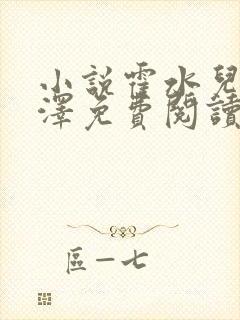 小說霍水兒
澤免費閱讀
區一七